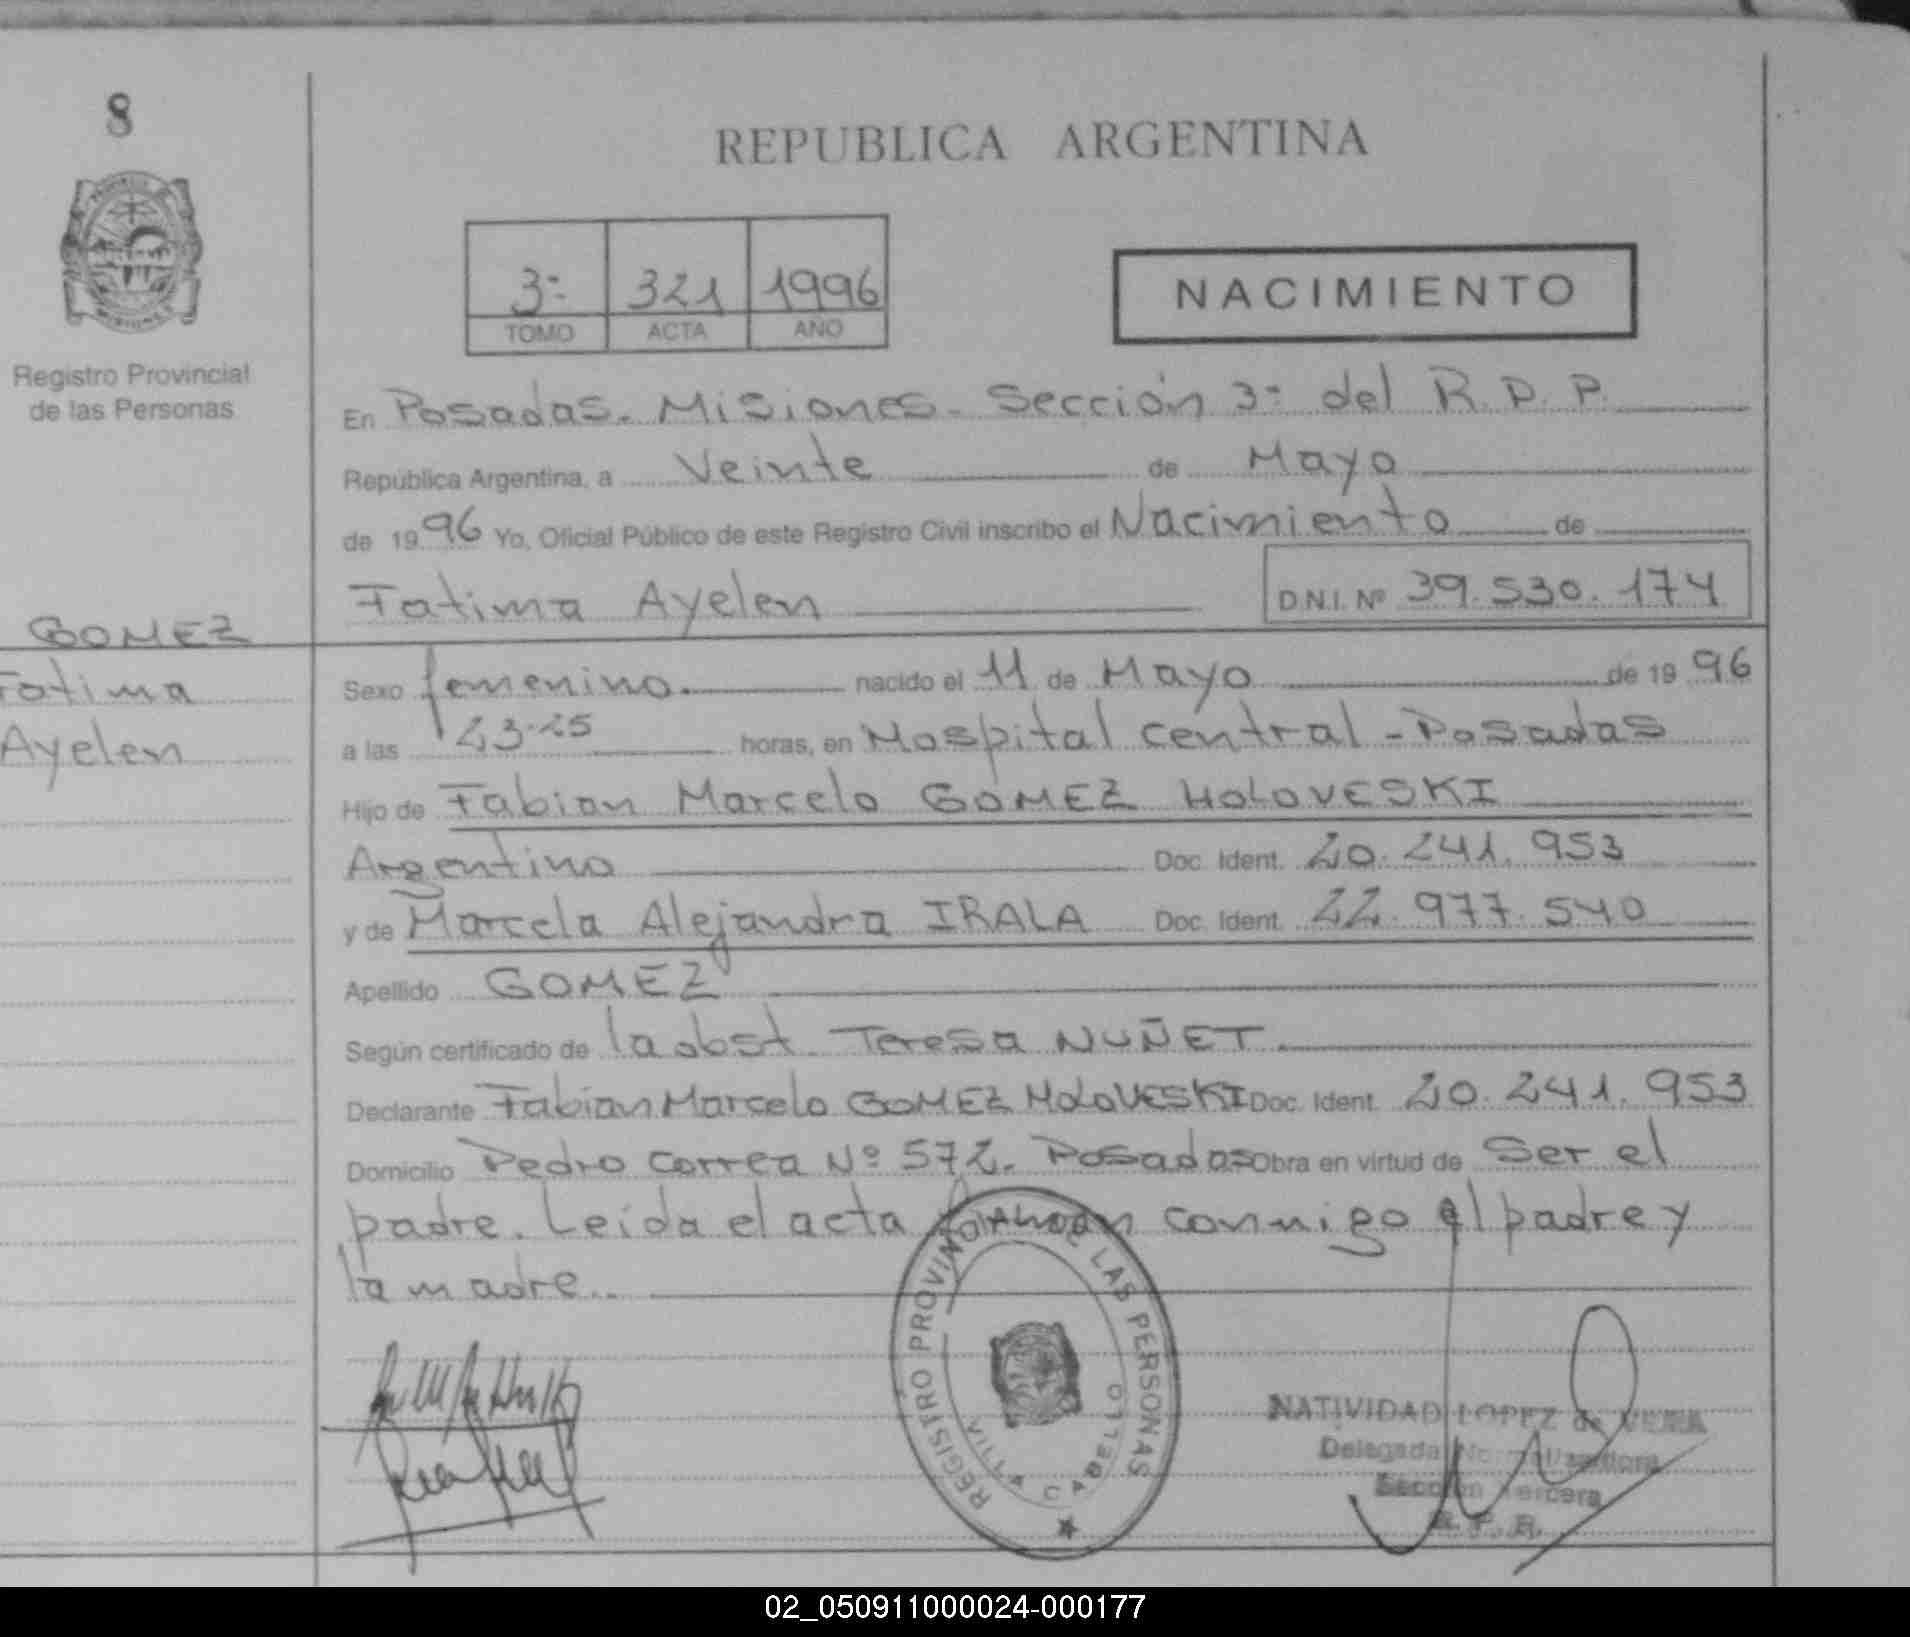 8
REPUBLICA ARGENTINA
3º 321 1996
TOMO ACTA AÑO
NACIMIENTO
Registro Provincial
de las Personas
En Posadas. Misiones - Sección 3º del R. P. P.
República Argentina, a Veinte de Mayo
de 1996 Yo, Oficial Público de este Registro Civil inscribo el Nacimiento de
Fatima Ayelen D.N.I. Nº 39.530.174
GOMEZ
Fatima
Ayelen
Sexo femenino. nacido el 11 de Mayo de 1996
a las 23-25 horas, en Hospital central - Posadas
Hijo de Fabian Marcelo GOMEZ HOLOVESKI
Argentino Doc. Ident. 20.241.953
y de Marcela Alejandra IRALA Doc. Ident. 22.977.540
Apellido GOMEZ
Según certificado de la obst. Teresa NUÑET.
Declarante Fabian Marcelo GOMEZ HOLOVESKI Doc. Ident. 20.241.953
Domicilio Pedro Correa Nº 572. Posadas Obra en virtud de Ser el
padre. Leída el acta firman conmigo el padre y
la madre.
REGISTRO PROVINCIAL DE LAS PERSONAS
VILLA CABELLO
NATIVIDAD LOPEZ de VERA
Delegada Normalizadora
Sección Tercera
R.P.P.
02_050911000024-000177